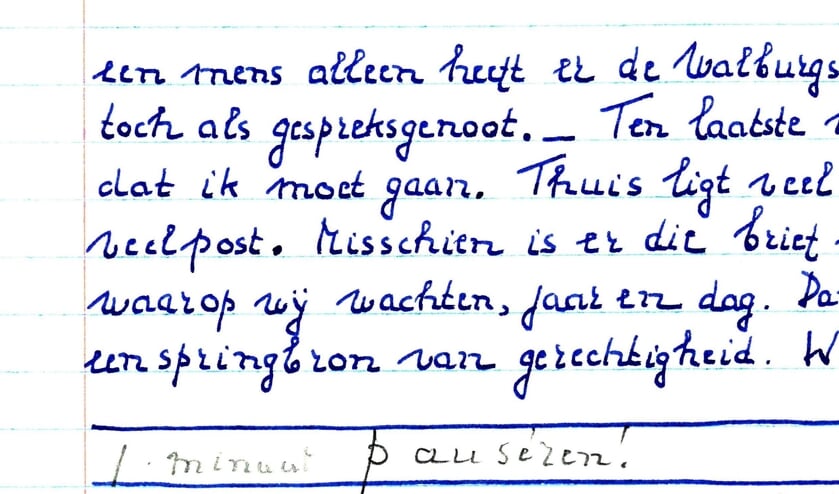 een mens alleen heeft er de Walburgs
toch als gespreksgenoot. _ Ten laatste
dat ik moet gaan. Thuis ligt veel
veelpost. Misschien is er die brief
waarop wij wachten, jaar en dag. Da
een springbron van gerechtigheid. W
1 minuut pauseren!